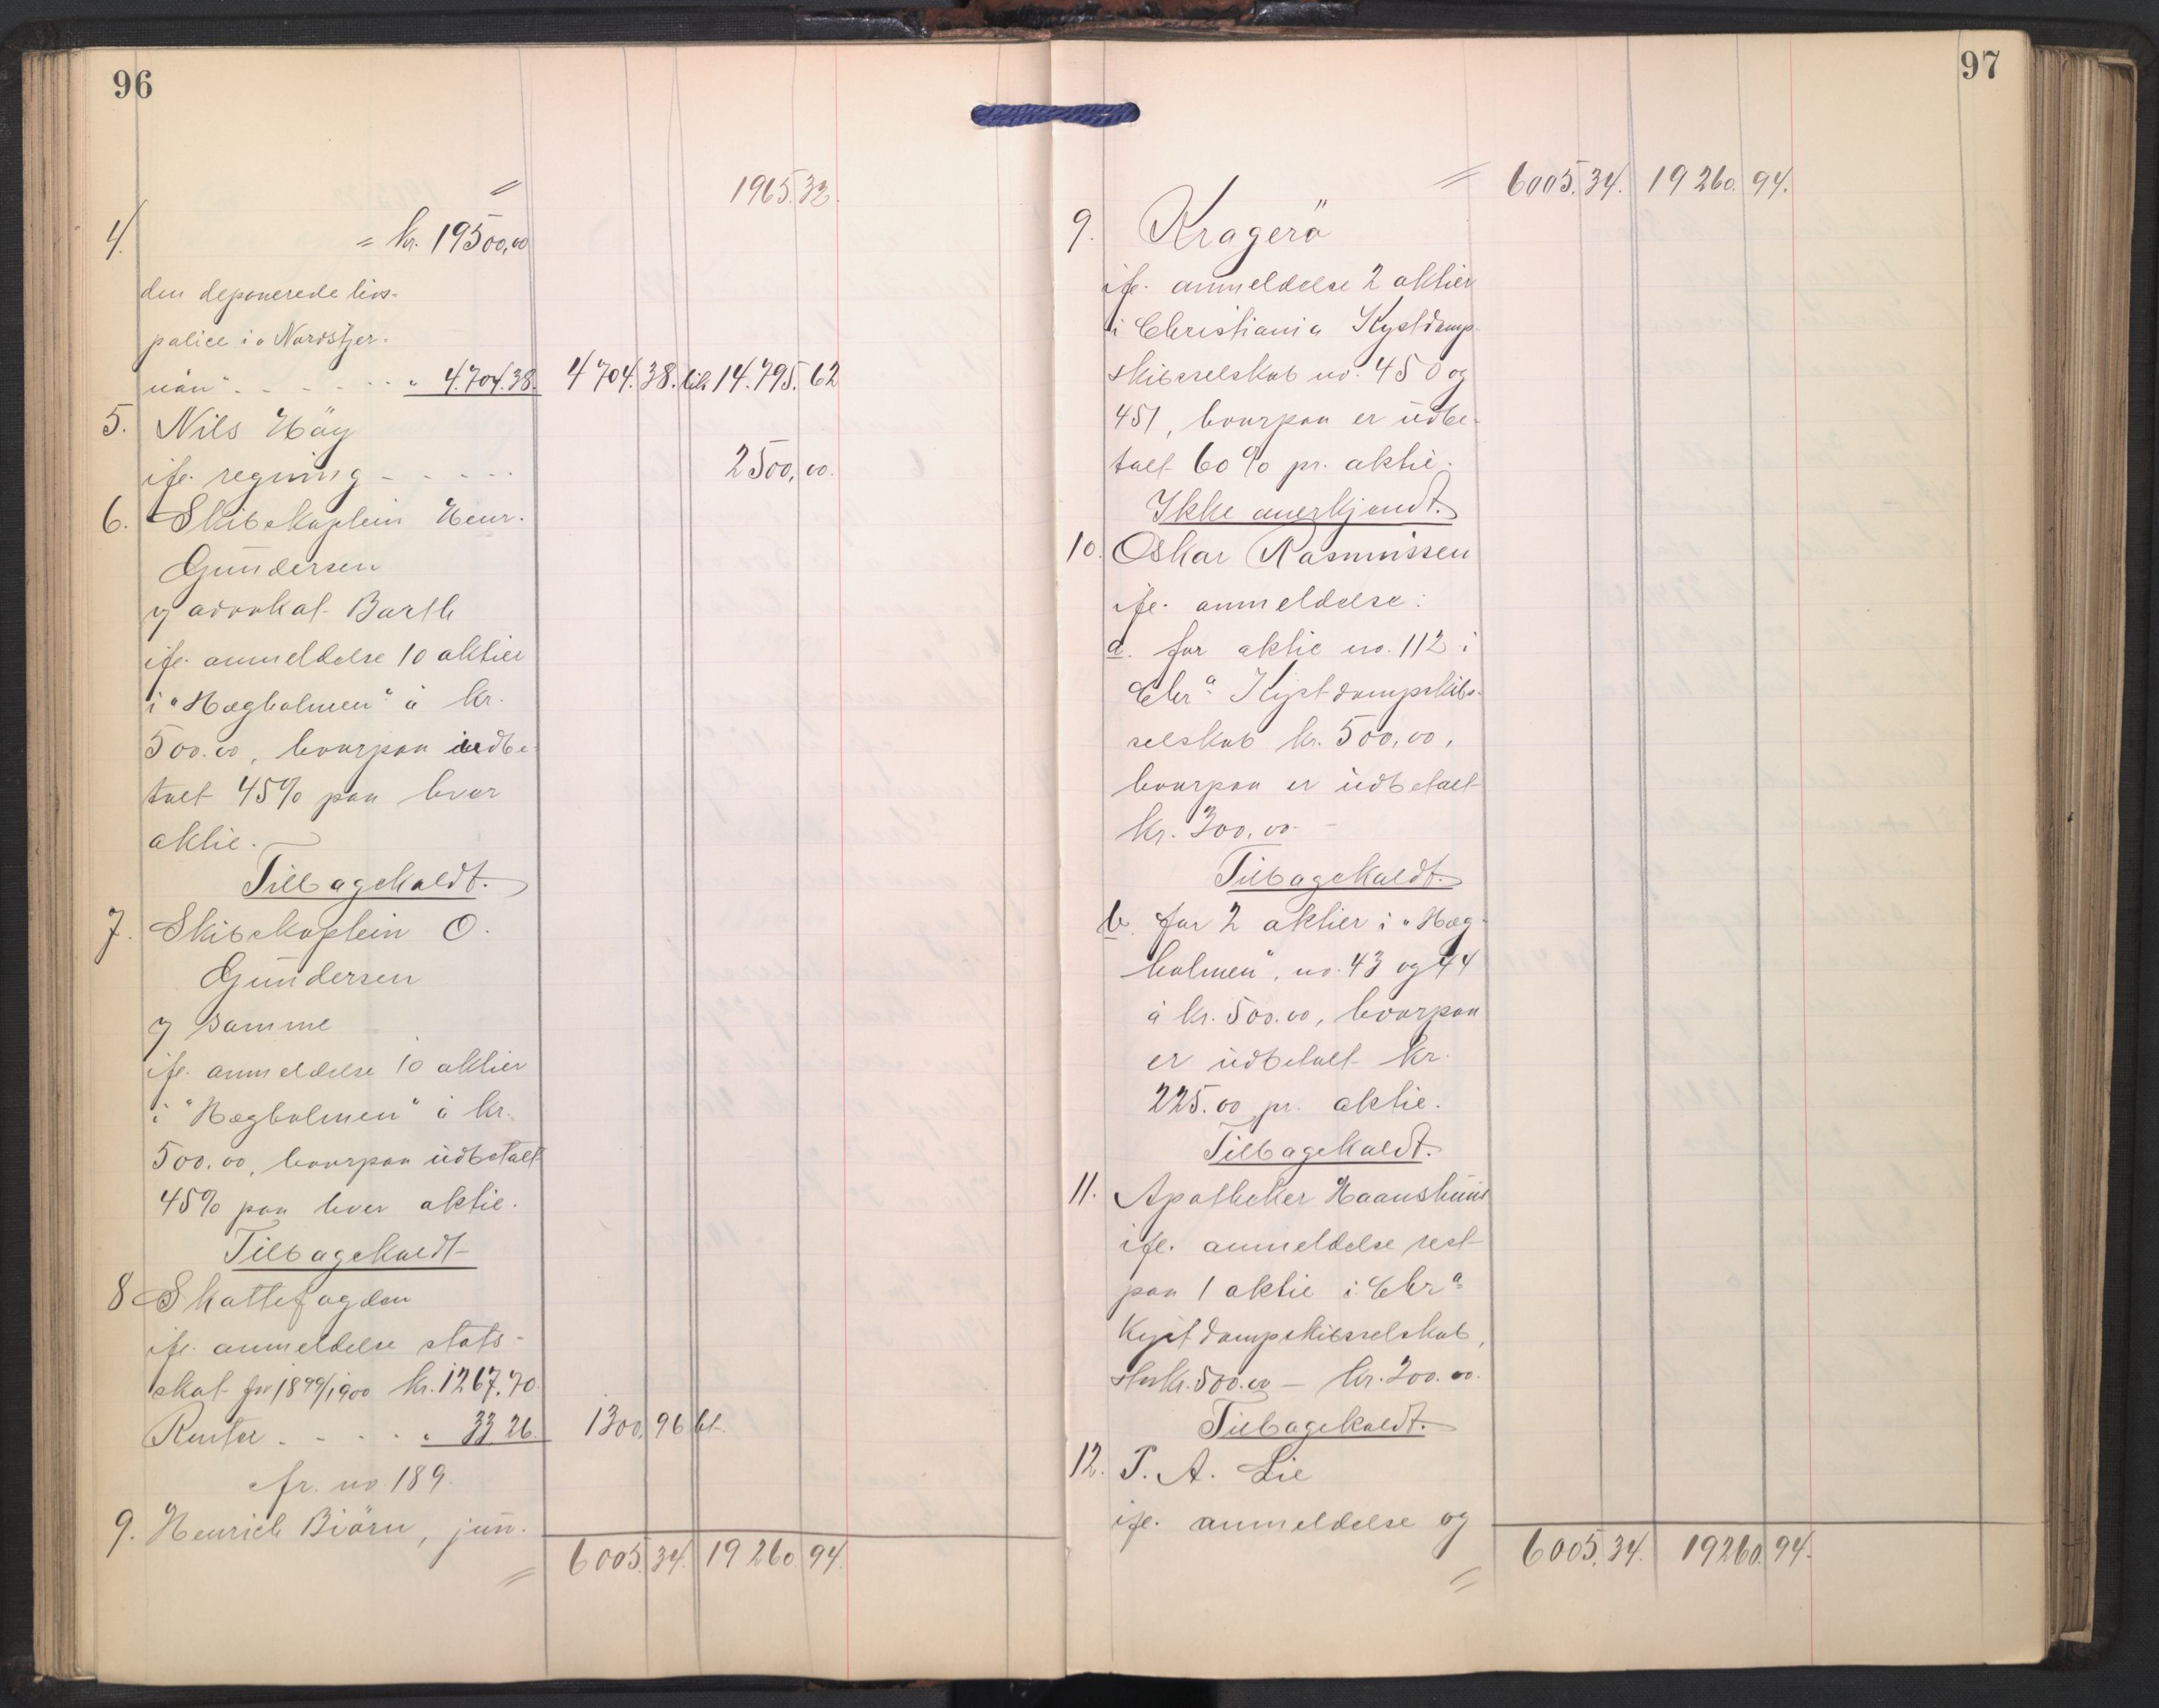 96
= 1965.32.
4. = kr. 19500,00
den deponerede livs-
police i „Nordstjer-
nen“ - - - - - „ 4.704.38. 4704.38. bil. 14.795.62
5. Nils Höy
ifl. regning - - - - - 2500,00.
6. Skibskaptein Henr.
Gundersen
v/ advokat Barth
ifl. anmeldelse 10 aktier
i „Hægholmen“ à kr.
500.00, hvorpaa indbe-
talt 45% paa hver
aktie.
Tilbagekaldt.
7. Skibskaptein O.
Gundersen
v/ samme
ifl. anmeldelse 10 aktier
i „Hægholmen“ à kr.
500.00, hvorpaa udbetalt
45% paa hver aktie.
Tilbagekaldt
8 Skattefogden
ifl. anmeldelse stats-
skat for 1899/1900 kr. 1267.70.
Renter - - - - „ 33.26. 1300.96 bt.
cfr. no. 189.
9. Henrich Biörn, jun.
= 6005.34. 19260.94.
97
= 6005.34. 19260.94.
9. Kragerö
ifl. anmeldelse 2 aktier
i Christiania Kystdamp-
skibsselskab no. 450 og
451, hvorpaa er udbe-
talt 60% pr. aktie.
Ikke anerkjendt.
10. Oskar Rasmussen
ifl. anmeldelse:
a. for aktie no. 112 i
Chra Kystdampskibs-
selskab kr. 500,00,
hvorpaa er udbetalt
kr. 300,00 -
Tilbagekaldt.
b. for 2 aktier i „Hæg-
holmen“, no. 43 og 44
à kr. 500.00, hvorpaa
er udbetalt kr.
225.00 pr. aktie.
Tilbagekaldt.
11. Apotheker Haanshuus
ifl. anmeldelse rest
paa 1 aktie i Chra
Kystdampskibsselskab,
kr. 500.00 - kr. 200.00.
Tilbagekaldt.
12. T. A. Lie
ifl. anmeldelse og
= 6005.34. 19260.94.